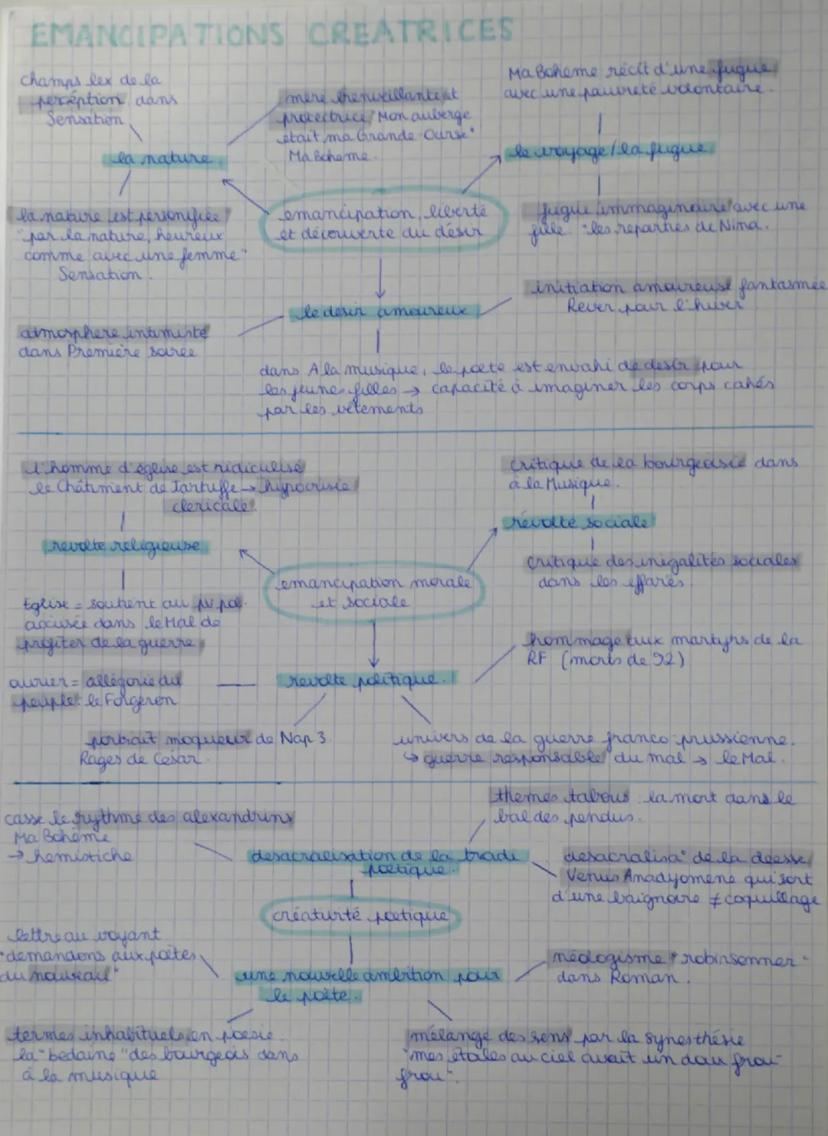 EMANCIPATIONS CREATRICES
champs lex de la
perception dans
Sensation
mère bienveillante et
protectrice "Mon auberge
était ma Grande Ourse"
Ma Boheme.
Ma Boheme récit d'une fugue
avec une pauvreté volontaire.
la nature.
le voyage / la fugue
la nature est personifiée
"par la nature, heureux
comme avec une femme"
Sensation.
emancipation, liberté
et découverte du désir
fugue immaginaire avec une
fille : les reparties de Nina.
le desir amoureux
initiation amoureuse fantasmée
Rever pour l'hiver
atmosphere intimiste
dans Première soirée
dans A la musique, le poete est envahi de desir pour
les jeune filles → capacité à imaginer les corps cahés
par les vêtements
l'homme d'église est ridiculisé
le Châtiment de Tartuffe → hypocrisie
clericale
critique de la bourgeoisie dans
à la Musique.
révolte sociale
revolte religieuse
critique des inégalités sociales
dans les effarés
emancipation morale
et sociale
Eglise = soutient au pv pol.
accusée dans le Mal de
profiter de la guerre
hommage aux martyrs de la
RF (morts de 92)
revolte politique.
ouvrier = allégorie du
peuple le Forgeron
portrait moqueur de Nap 3.
Rages de Cesar.
univers de la guerre franco-prussienne.
↳ guerre responsable du mal → le Mal.
themes tabous : la mort dans le
bal des pendus.
casse le rythme des alexandrins
Ma Boheme
→ hemistiche
desacralisation de la tradi
poetique.
desacralisa° de la deesse
Venus Anadyomene qui sort
d'une baignoire ≠ coquillage
créaturté poetique
lettre au voyant
"demandons aux poètes
du nouveau"
une nouvelle ambition pour
le poète.
néologisme "robinsonner"
dans Roman.
termes inhabituels en poesie.
la "bedaine" des bourgeois dans
à la musique
mélange des sens par la synesthésie
"mes étoiles au ciel avait un doux frou-
frou".